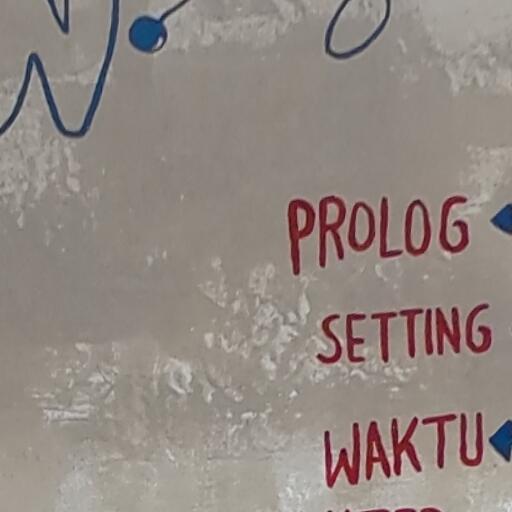 PROLOG
SETTING
WAKTU